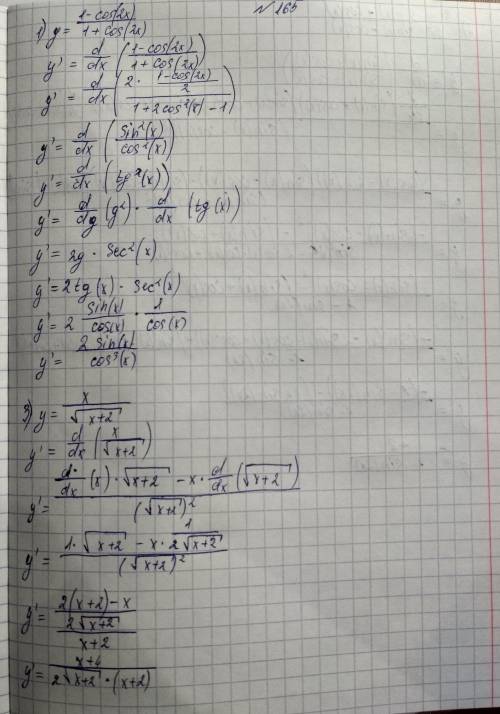 № 165
1) y = (1-cos(2x))/(1+cos(2x))
y' = d/dx ((1-cos(2x))/(1+cos(2x)))
y' = d/dx ((2 · (1-cos(2x))/2)/(1+2cos²(x)-1))
y' = d/dx (sin²(x)/cos²(x))
y' = d/dx (tg²(x))
y' = d/dg (g²) · d/dx (tg(x))
y' = 2g · sec²(x)
y' = 2tg(x) · sec²(x)
y' = 2 sin(x)/cos(x) · 1/cos(x)
y' = 2 sin(x)/cos³(x)
3) y = x/√(x+2)
y' = d/dx (x/√(x+2))
y' = (d/dx (x) · √(x+2) - x · d/dx (√(x+2)))/(√(x+2))²
y' = (1 · √(x+2) - x · 1/(2√(x+2)))/(√(x+2))²
y' = ((2(x+2)-x)/(2√(x+2)))/(x+2)
y' = (x+4)/(2√(x+2) · (x+2))